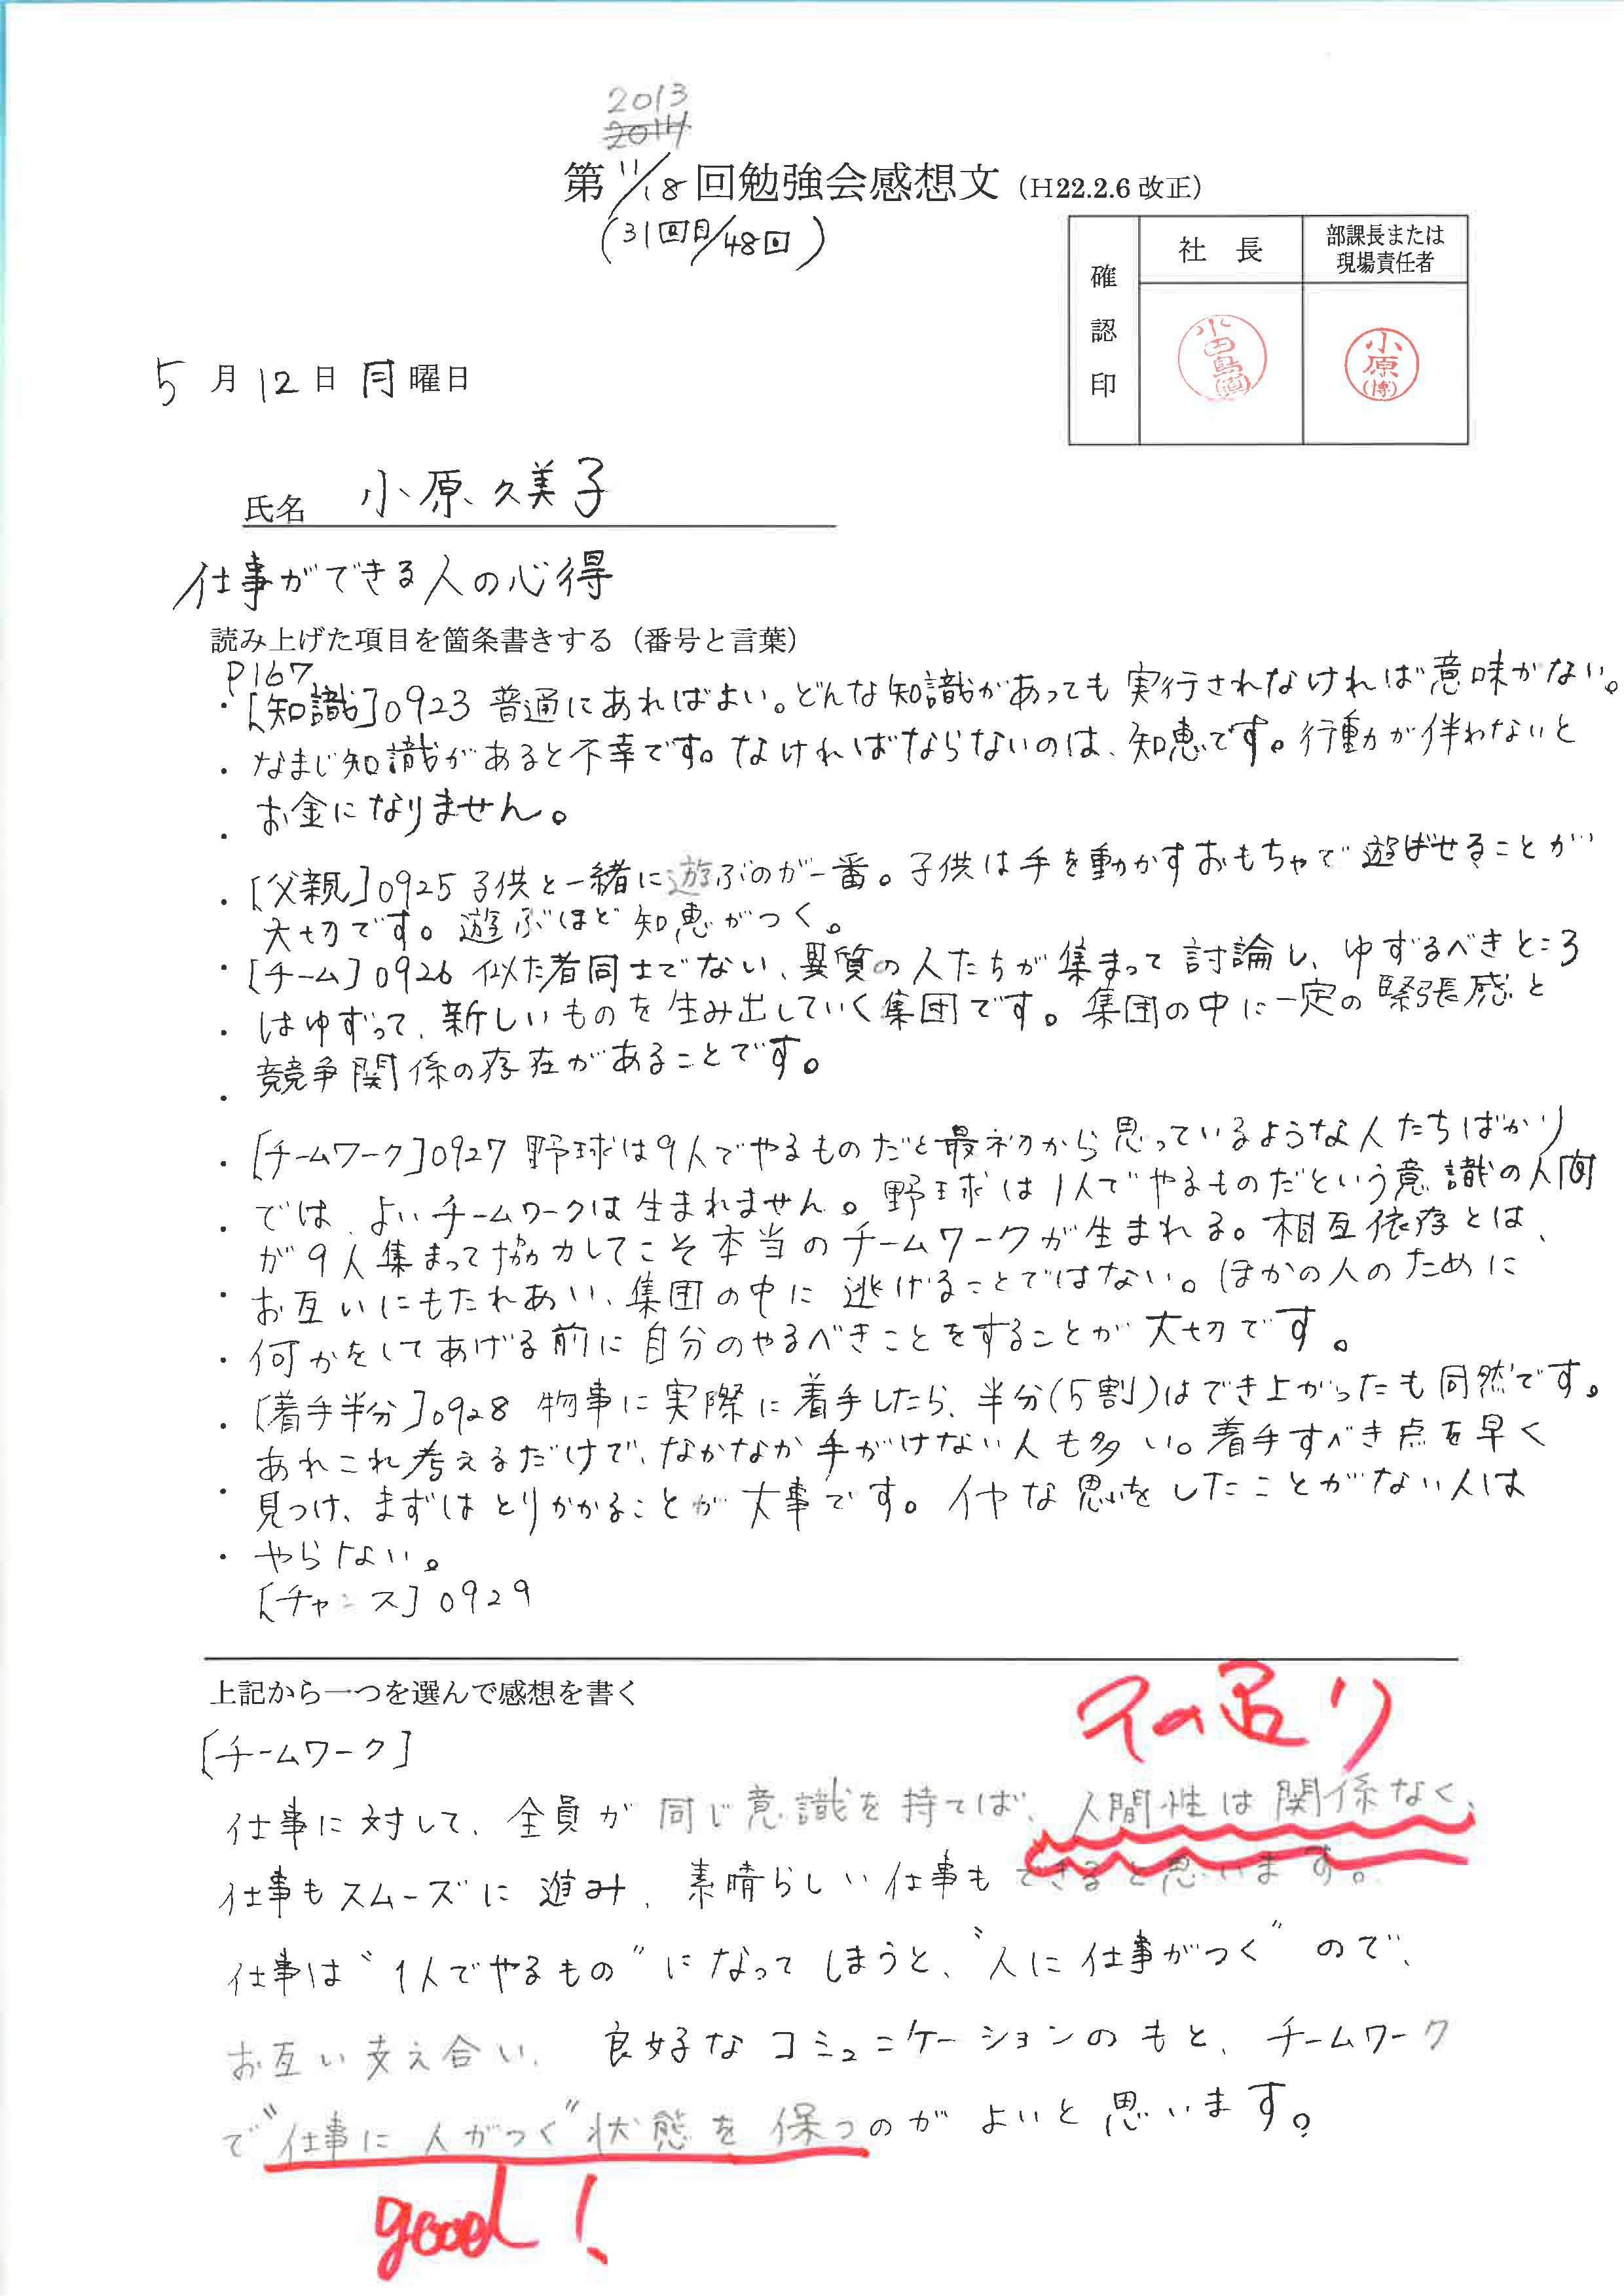 2013
2014
第11/18回勉強会感想文（H22.2.6 改正）
(31回目/48回)
確認印
社長
部課長または
現場責任者
小原
(博)
5月12日月曜日
氏名 小原久美子
仕事ができる人の心得
読み上げた項目を箇条書きする（番号と言葉）
P167
・[知識]0923 普通にあればよい。どんな知識があっても実行されなければ意味がない。
・なまじ知識があると不幸です。なければならないのは、知恵です。行動が伴わないと
・お金になりません。
・[父親]0925 子供と一緒に遊ぶのが一番。子供は手を動かすおもちゃで遊ばせることが
大切です。遊ぶほど知恵がつく。
・[チーム]0926 似た者同士でない、異質の人たちが集まって討論し、ゆずるべきところ
・はゆずって、新しいものを生み出していく集団です。集団の中に一定の緊張感と
・競争関係の存在があることです。
・[チームワーク]0927 野球は9人でやるものだと最初から思っているような人たちばかり
・では、よいチームワークは生まれません。野球は1人でやるものだという意識の人間
が9人集まって協力してこそ本当のチームワークが生まれる。相互依存とは、
・お互いにもたれあい、集団の中に逃げることではない。ほかの人のために
・何かをしてあげる前に自分のやるべきことをすることが大切です。
・[着手半分]0928 物事に実際に着手したら、半分(5割)はでき上がったも同然です。
あれこれ考えるだけで、なかなか手がけない人も多い。着手すべき点を早く
・見つけ、まずはとりかかることが大事です。イヤな思いをしたことがない人は
・やらない。
[チャンス]0929
上記から一つを選んで感想を書く
その通り
[チームワーク]
仕事に対して、全員が同じ意識を持てば、人間性は関係なく、
仕事もスムーズに進み、素晴らしい仕事もできると思います。
仕事は"1人でやるもの"になってしまうと、"人に仕事がつく"ので、
お互い支え合い、良好なコミュニケーションのもと、チームワーク
で"仕事に人がつく"状態を保つのがよいと思います。
good!